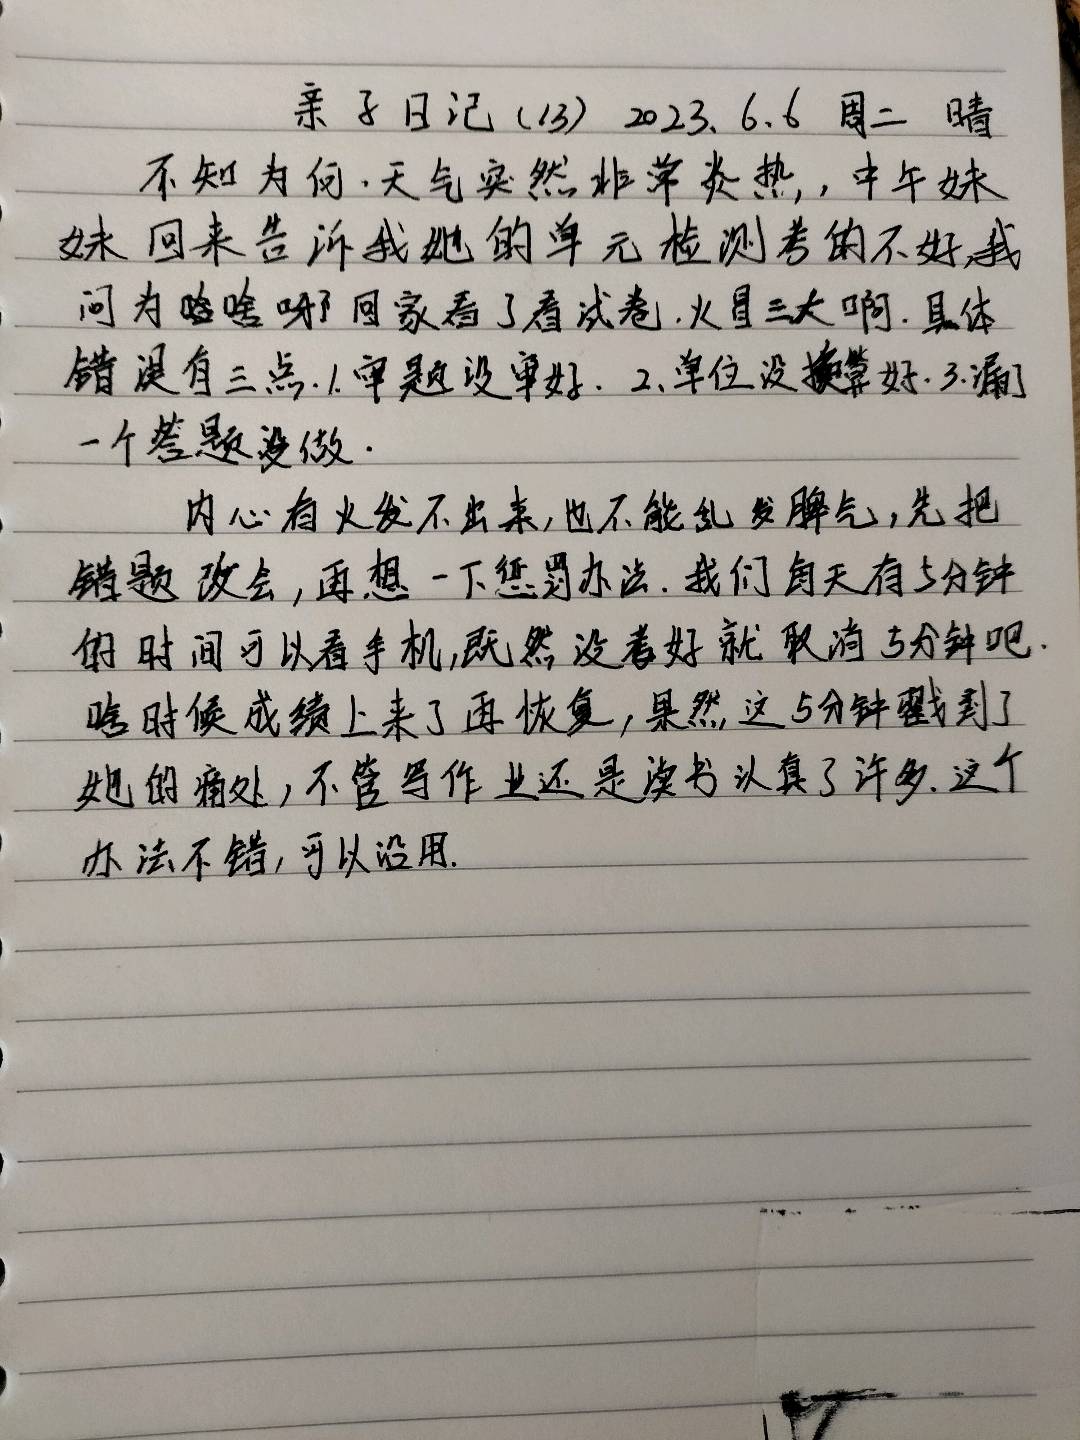 亲子日记(13) 2023.6.6 周二 晴
不知为何.天气突然非常炎热,,中午妹
妹回来告诉我她的单元检测考的不好,我
问为啥啥呀?回家看了看试卷.火冒三大啊.具体
错误有三点.1.审题没审好. 2.单位没换算好.3.漏了
一个答题没做.
内心有火发不出来,也不能乱发脾气,先把
错题改会,再想一下惩罚办法.我们每天有5分钟
的时间可以看手机,既然没考好就取消5分钟吧.
啥时候成绩上来了再恢复,果然这5分钟戳到了
她的痛处,不管写作业还是读书认真了许多.这个
办法不错,可以沿用.